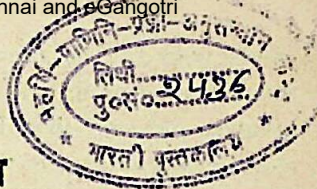 nnai and eGangotri
महर्षि-पाणिनि-प्रज्ञा-अनुसन्धान
तिथी..............
पु०सं०...2436
* भारती पुस्तकालय *